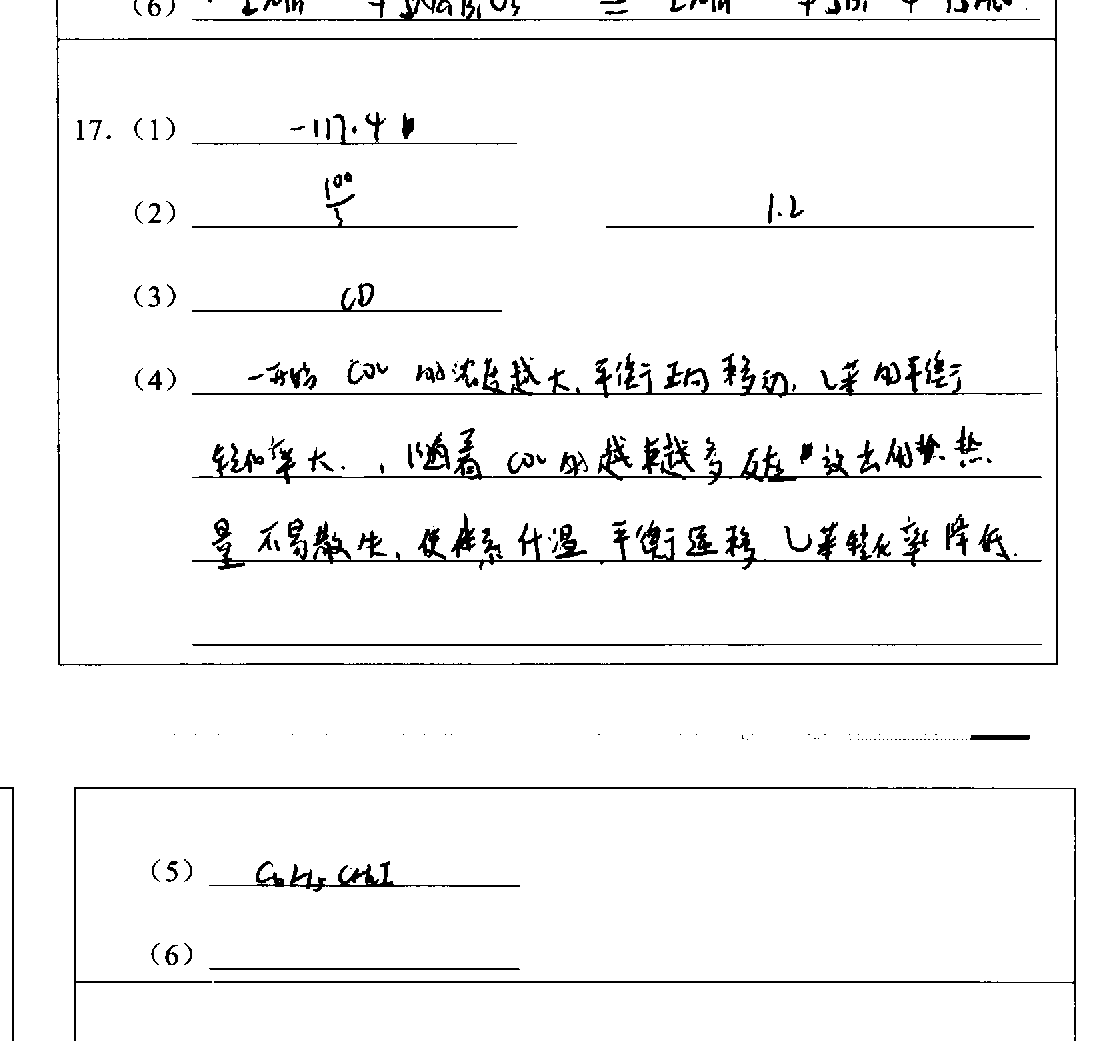 (6) 2Mn + 5NaBiO₃ = 2Mn + 5Bi +
17.（1） -117.4
（2） 100/3 1.2
（3） CD
（4） 一开始 CO₂ 的浓度越大, 平衡正向移动, 乙苯的平衡
转化率大. , 随着 CO₂ 的越来越多 反应放出的热
量不易散失, 使体系升温, 平衡逆移 乙苯转化率降低.
（5） C₆H₅CH₂I
（6）